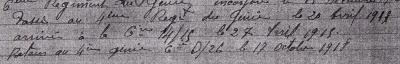 Régiment du Génie incorporé le
Passé au 4ème Regt du Génie le 20 Avril 1918
arrivé à la Cie 14/15 le 27 Avril 1918.
au 4ème génie Cie D/26 le 17 Octobre 1918